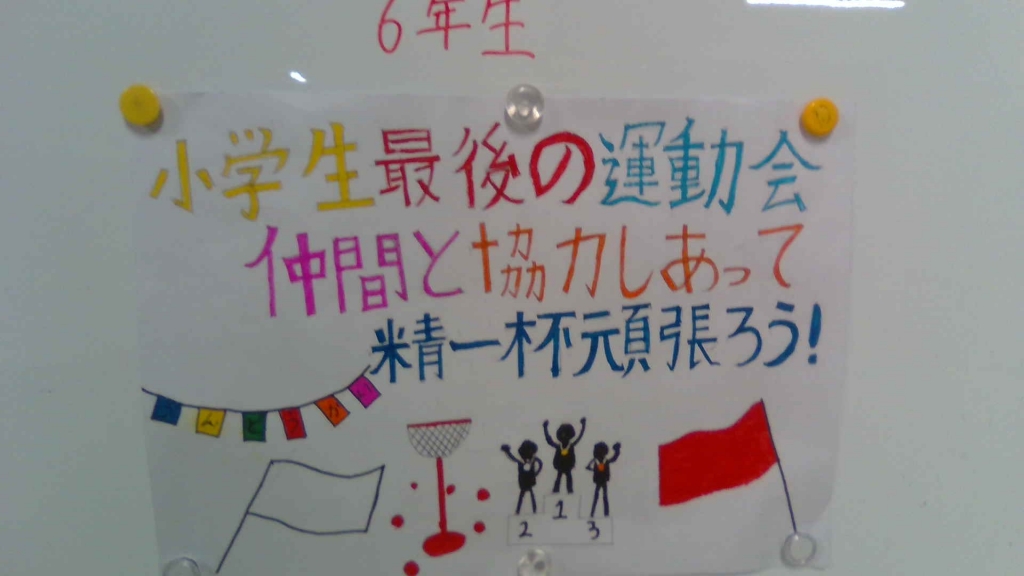 6年生
小学生最後の運動会
仲間と協力しあって
精一杯頑張ろう!
うんどうかい
2 1 3